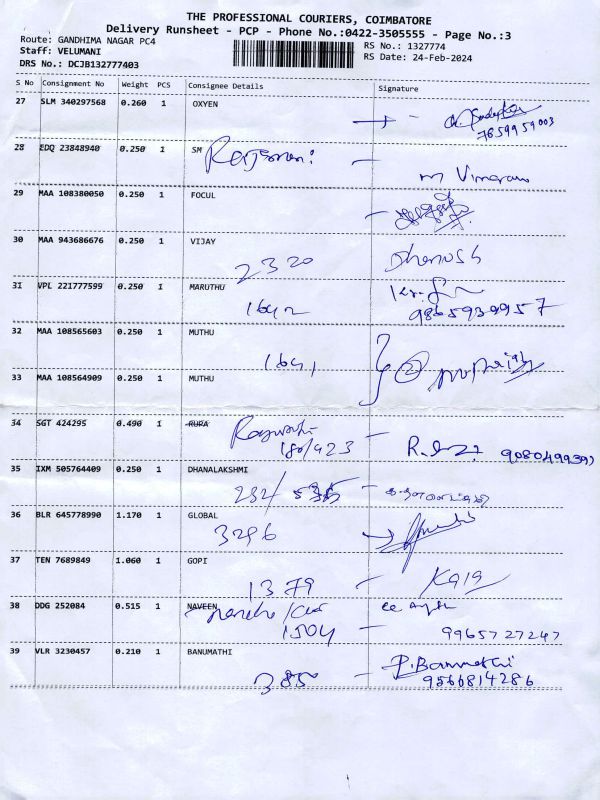 THE PROFESSIONAL COURIERS, COIMBATORE
Delivery Runsheet - PCP - Phone No.:0422-3505555 - Page No.:3
Route: GANDHIMA NAGAR PC4
RS No.: 1327774
Staff: VELUMANI
RS Date: 24-Feb-2024
DRS No.: DCJB132777403
S No Consignment No Weight PCS Consignee Details Signature
27 SLM 340297568 0.260 1 OXYEN
7859959003
28 EDQ 23848940 0.250 1 SM
29 MAA 108380050 0.250 1 FOCUL
30 MAA 943686676 0.250 1 VIJAY
2320 Dhanush
31 VPL 221777599 0.250 1 MARUTHU
1642 9865939957
32 MAA 108565603 0.250 1 MUTHU
1641
33 MAA 108564909 0.250 1 MUTHU
34 SGT 424295 0.490 1 RUPA
180/423
35 IXM 505764409 0.250 1 DHANALAKSHMI
232/
36 BLR 645778990 1.170 1 GLOBAL
3296
37 TEN 7689849 1.060 1 GOPI
1379 Kala
38 DDG 252084 0.515 1 NAVEEN
1504 9965727247
39 VLR 3230457 0.210 1 BANUMATHI
385 P. Banumathi
9566814286